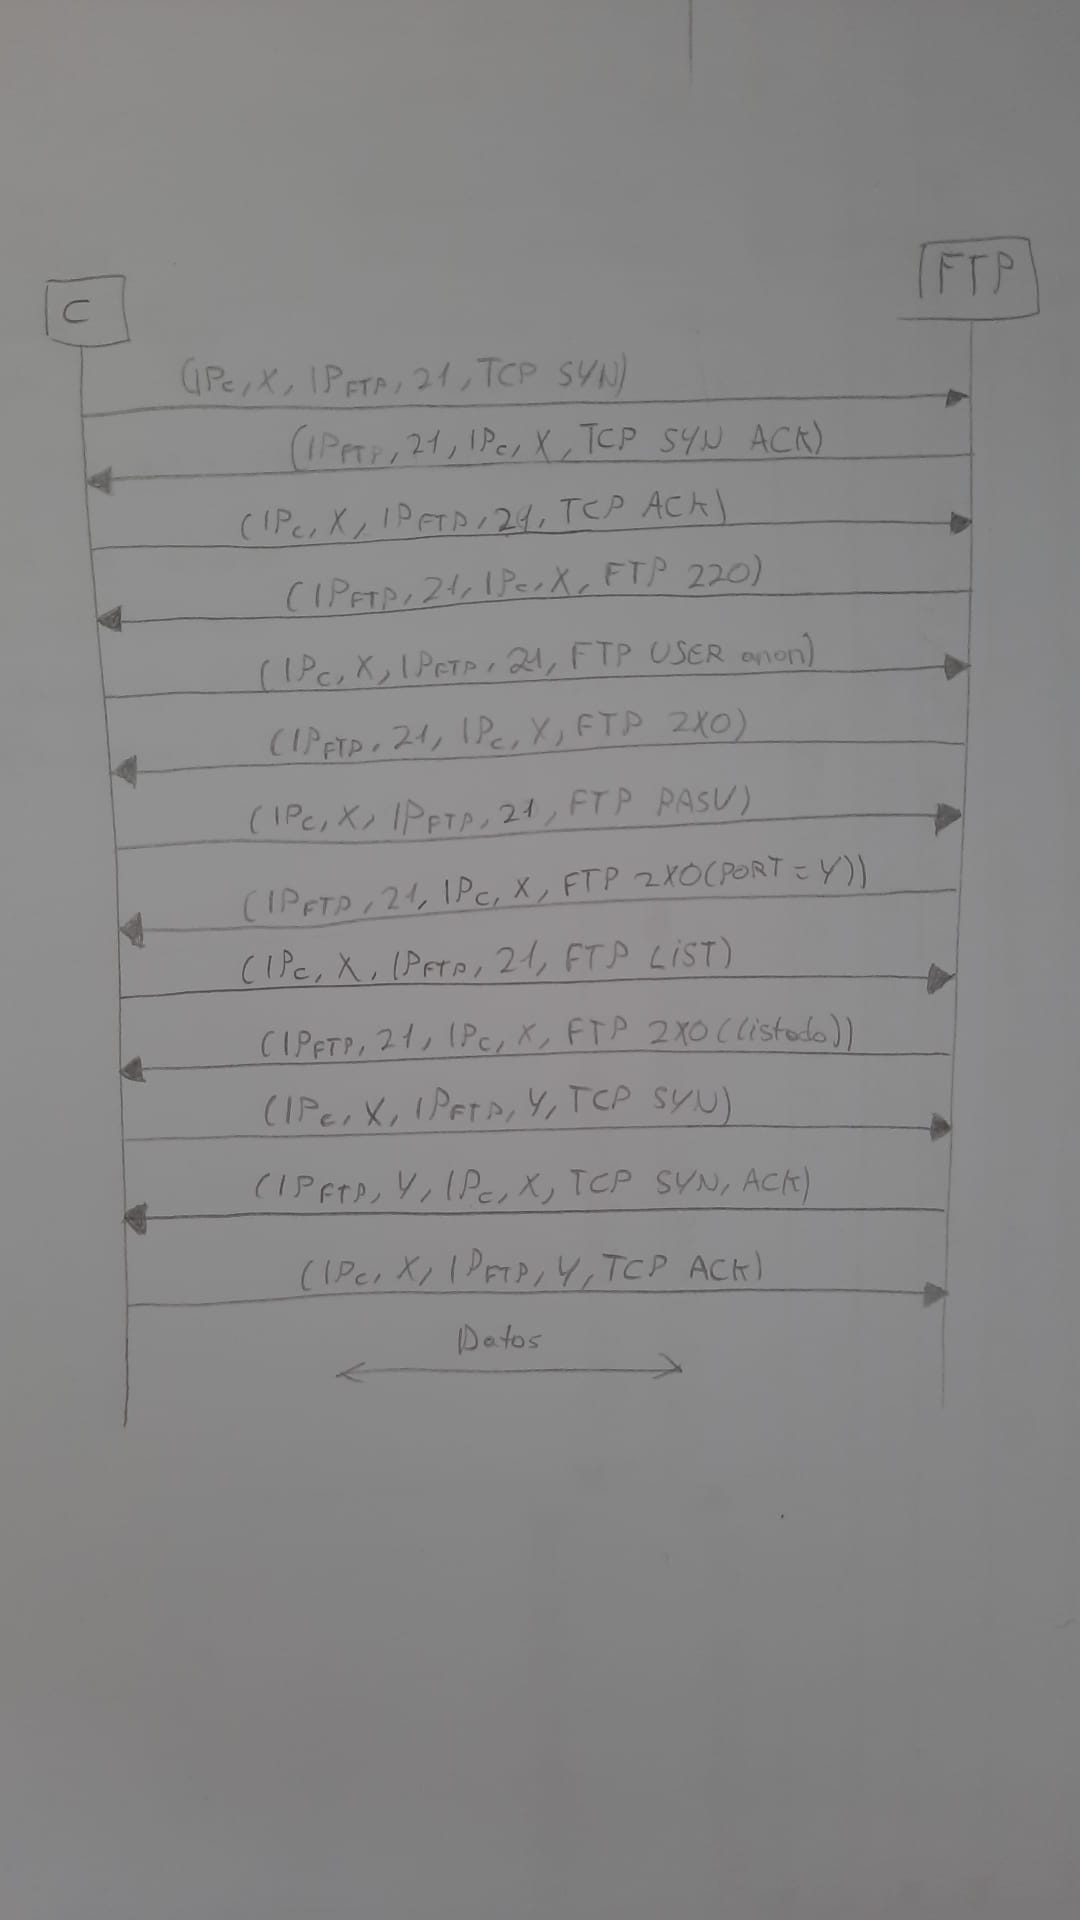 C
FTP
(IPC, X, IPFTP, 21, TCP SYN)
(IPFTP, 21, IPC, X, TCP SYN ACK)
(IPC, X, IPFTP, 21, TCP ACK)
(IPFTP, 21, IPC, X, FTP 220)
(IPC, X, IPFTP, 21, FTP USER anon)
(IPFTP, 21, IPC, X, FTP 2X0)
(IPC, X, IPFTP, 21, FTP PASV)
(IPFTP, 21, IPC, X, FTP 2X0(PORT = Y))
(IPC, X, IPFTP, 21, FTP LIST)
(IPFTP, 21, IPC, X, FTP 2X0 (listado))
(IPC, X, IPFTP, Y, TCP SYN)
(IPFTP, Y, IPC, X, TCP SYN, ACK)
(IPC, X, IPFTP, Y, TCP ACK)
Datos